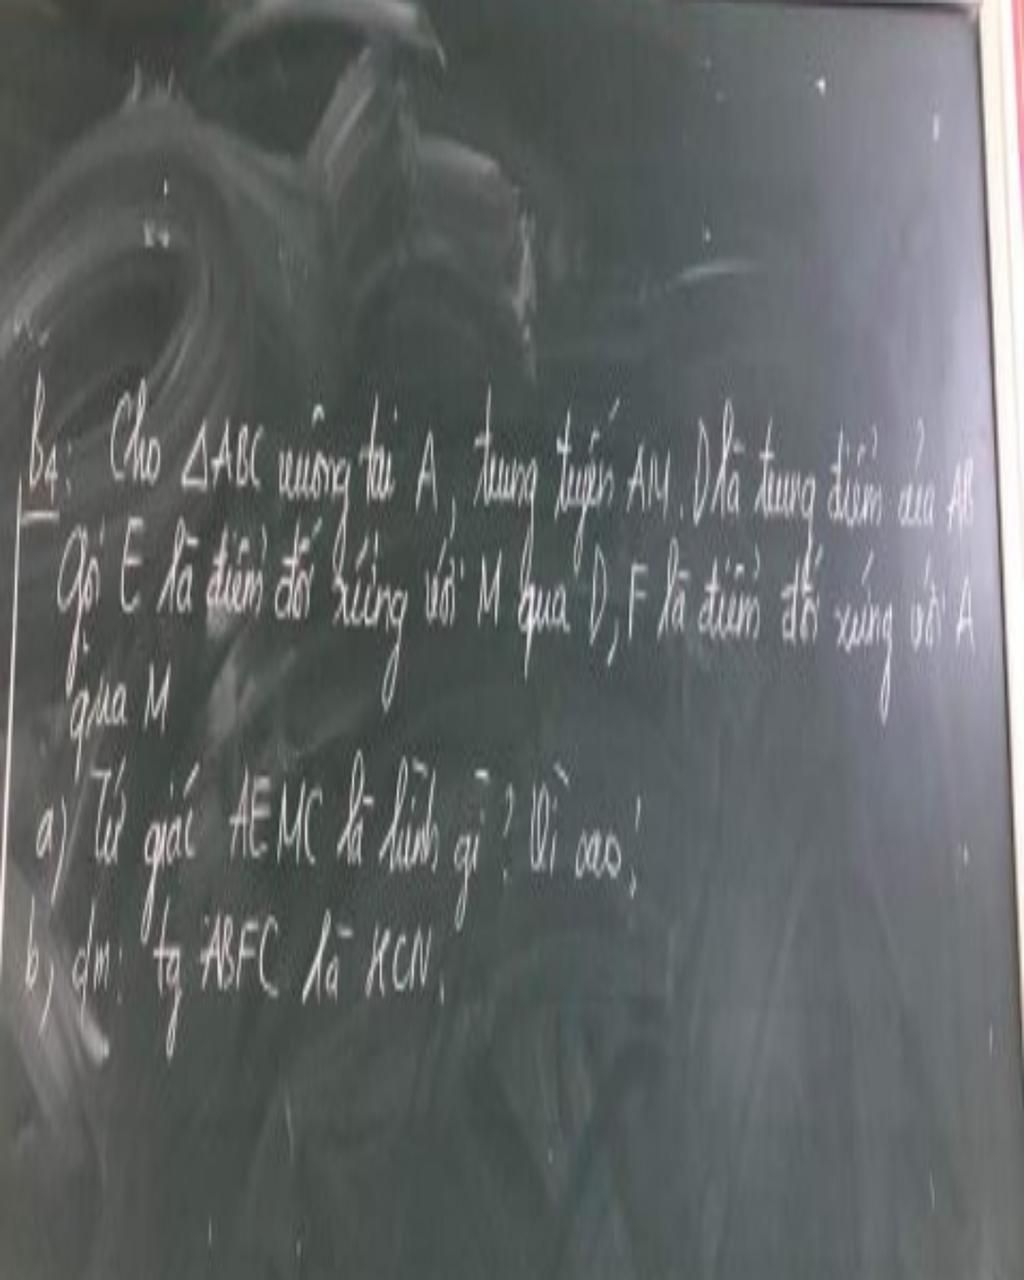 B4: Cho △ABC vuông tại A, trung tuyến AM. D là trung điểm của AB
Gọi E là điểm đối xứng với M qua D, F là điểm đối xứng với A
qua M
a) Tứ giác AEMC là hình gì? Vì sao?
b, cm: tg ABFC là HCN.